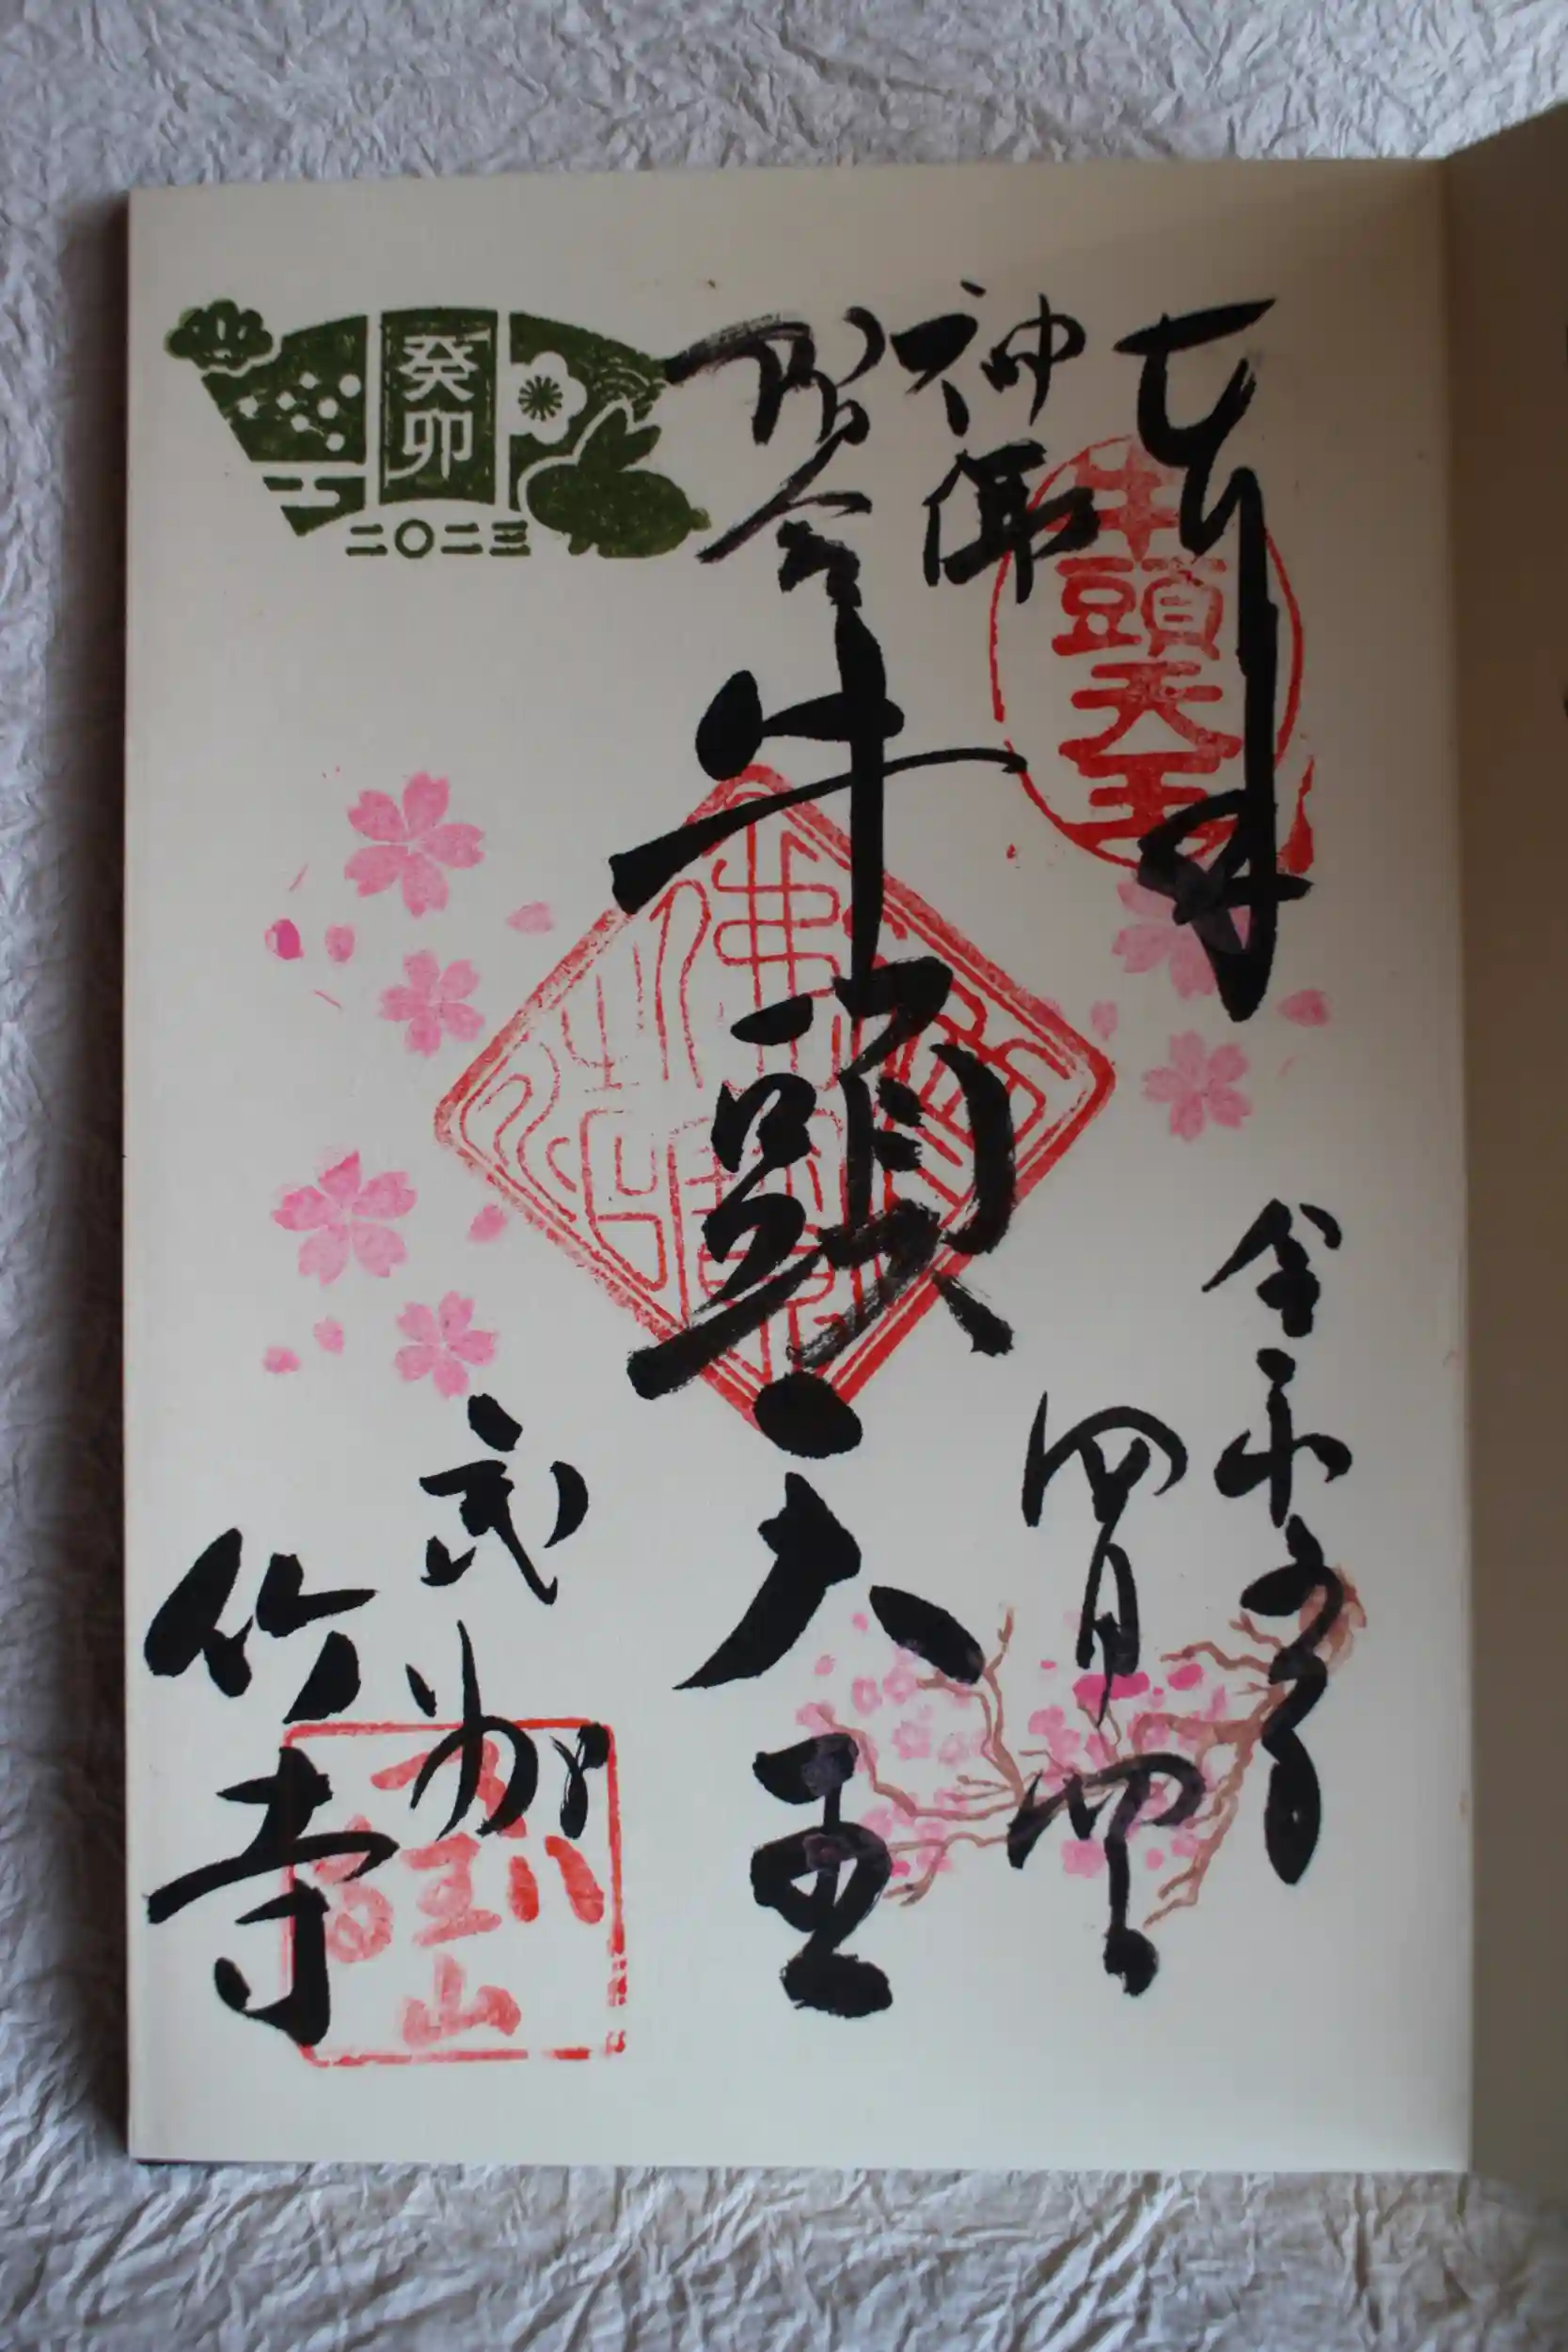 奉拝
牛頭天王
神仏
習合
牛頭天王
令和五年
四月四日
武州
竹寺
八王山
癸卯
二〇二三